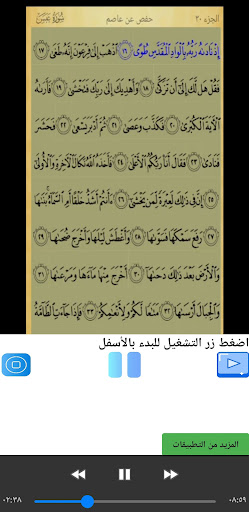 الجزء ٣٠ حفص عن عاصم سورة عبس
إِذْ نَادَاهُ رَبُّهُ بِالْوَادِ الْمُقَدَّسِ طُوًى ١٦ اذْهَبْ إِلَىٰ فِرْعَوْنَ إِنَّهُ طَغَىٰ ١٧
فَقُلْ هَل لَّكَ إِلَىٰ أَن تَزَكَّىٰ ١٨ وَأَهْدِيَكَ إِلَىٰ رَبِّكَ فَتَخْشَىٰ ١٩ فَأَرَاهُ
الْآيَةَ الْكُبْرَىٰ ٢٠ فَكَذَّبَ وَعَصَىٰ ٢١ ثُمَّ أَدْبَرَ يَسْعَىٰ ٢٢ فَحَشَرَ
فَنَادَىٰ ٢٣ فَقَالَ أَنَا رَبُّكُمُ الْأَعْلَىٰ ٢٤ فَأَخَذَهُ اللَّهُ نَكَالَ الْآخِرَةِ وَالْأُولَىٰ
٢٥ إِنَّ فِي ذَٰلِكَ لَعِبْرَةً لِّمَن يَخْشَىٰ ٢٦ أَأَنتُمْ أَشَدُّ خَلْقًا أَمِ السَّمَاءُ بَنَاهَا
٢٧ رَفَعَ سَمْكَهَا فَسَوَّاهَا ٢٨ وَأَغْطَشَ لَيْلَهَا وَأَخْرَجَ ضُحَاهَا ٢٩
وَالْأَرْضَ بَعْدَ ذَٰلِكَ دَحَاهَا ٣٠ أَخْرَجَ مِنْهَا مَاءَهَا وَمَرْعَاهَا ٣١
وَالْجِبَالَ أَرْسَاهَا ٣٢ مَتَاعًا لَّكُمْ وَلِأَنْعَامِكُمْ ٣٣ فَإِذَا جَاءَتِ الطَّامَّةُ
اضغط زر التشغيل للبدء بالأسفل
المزيد من التطبيقات
٠٢:٣٨ ٠٨:٥٩